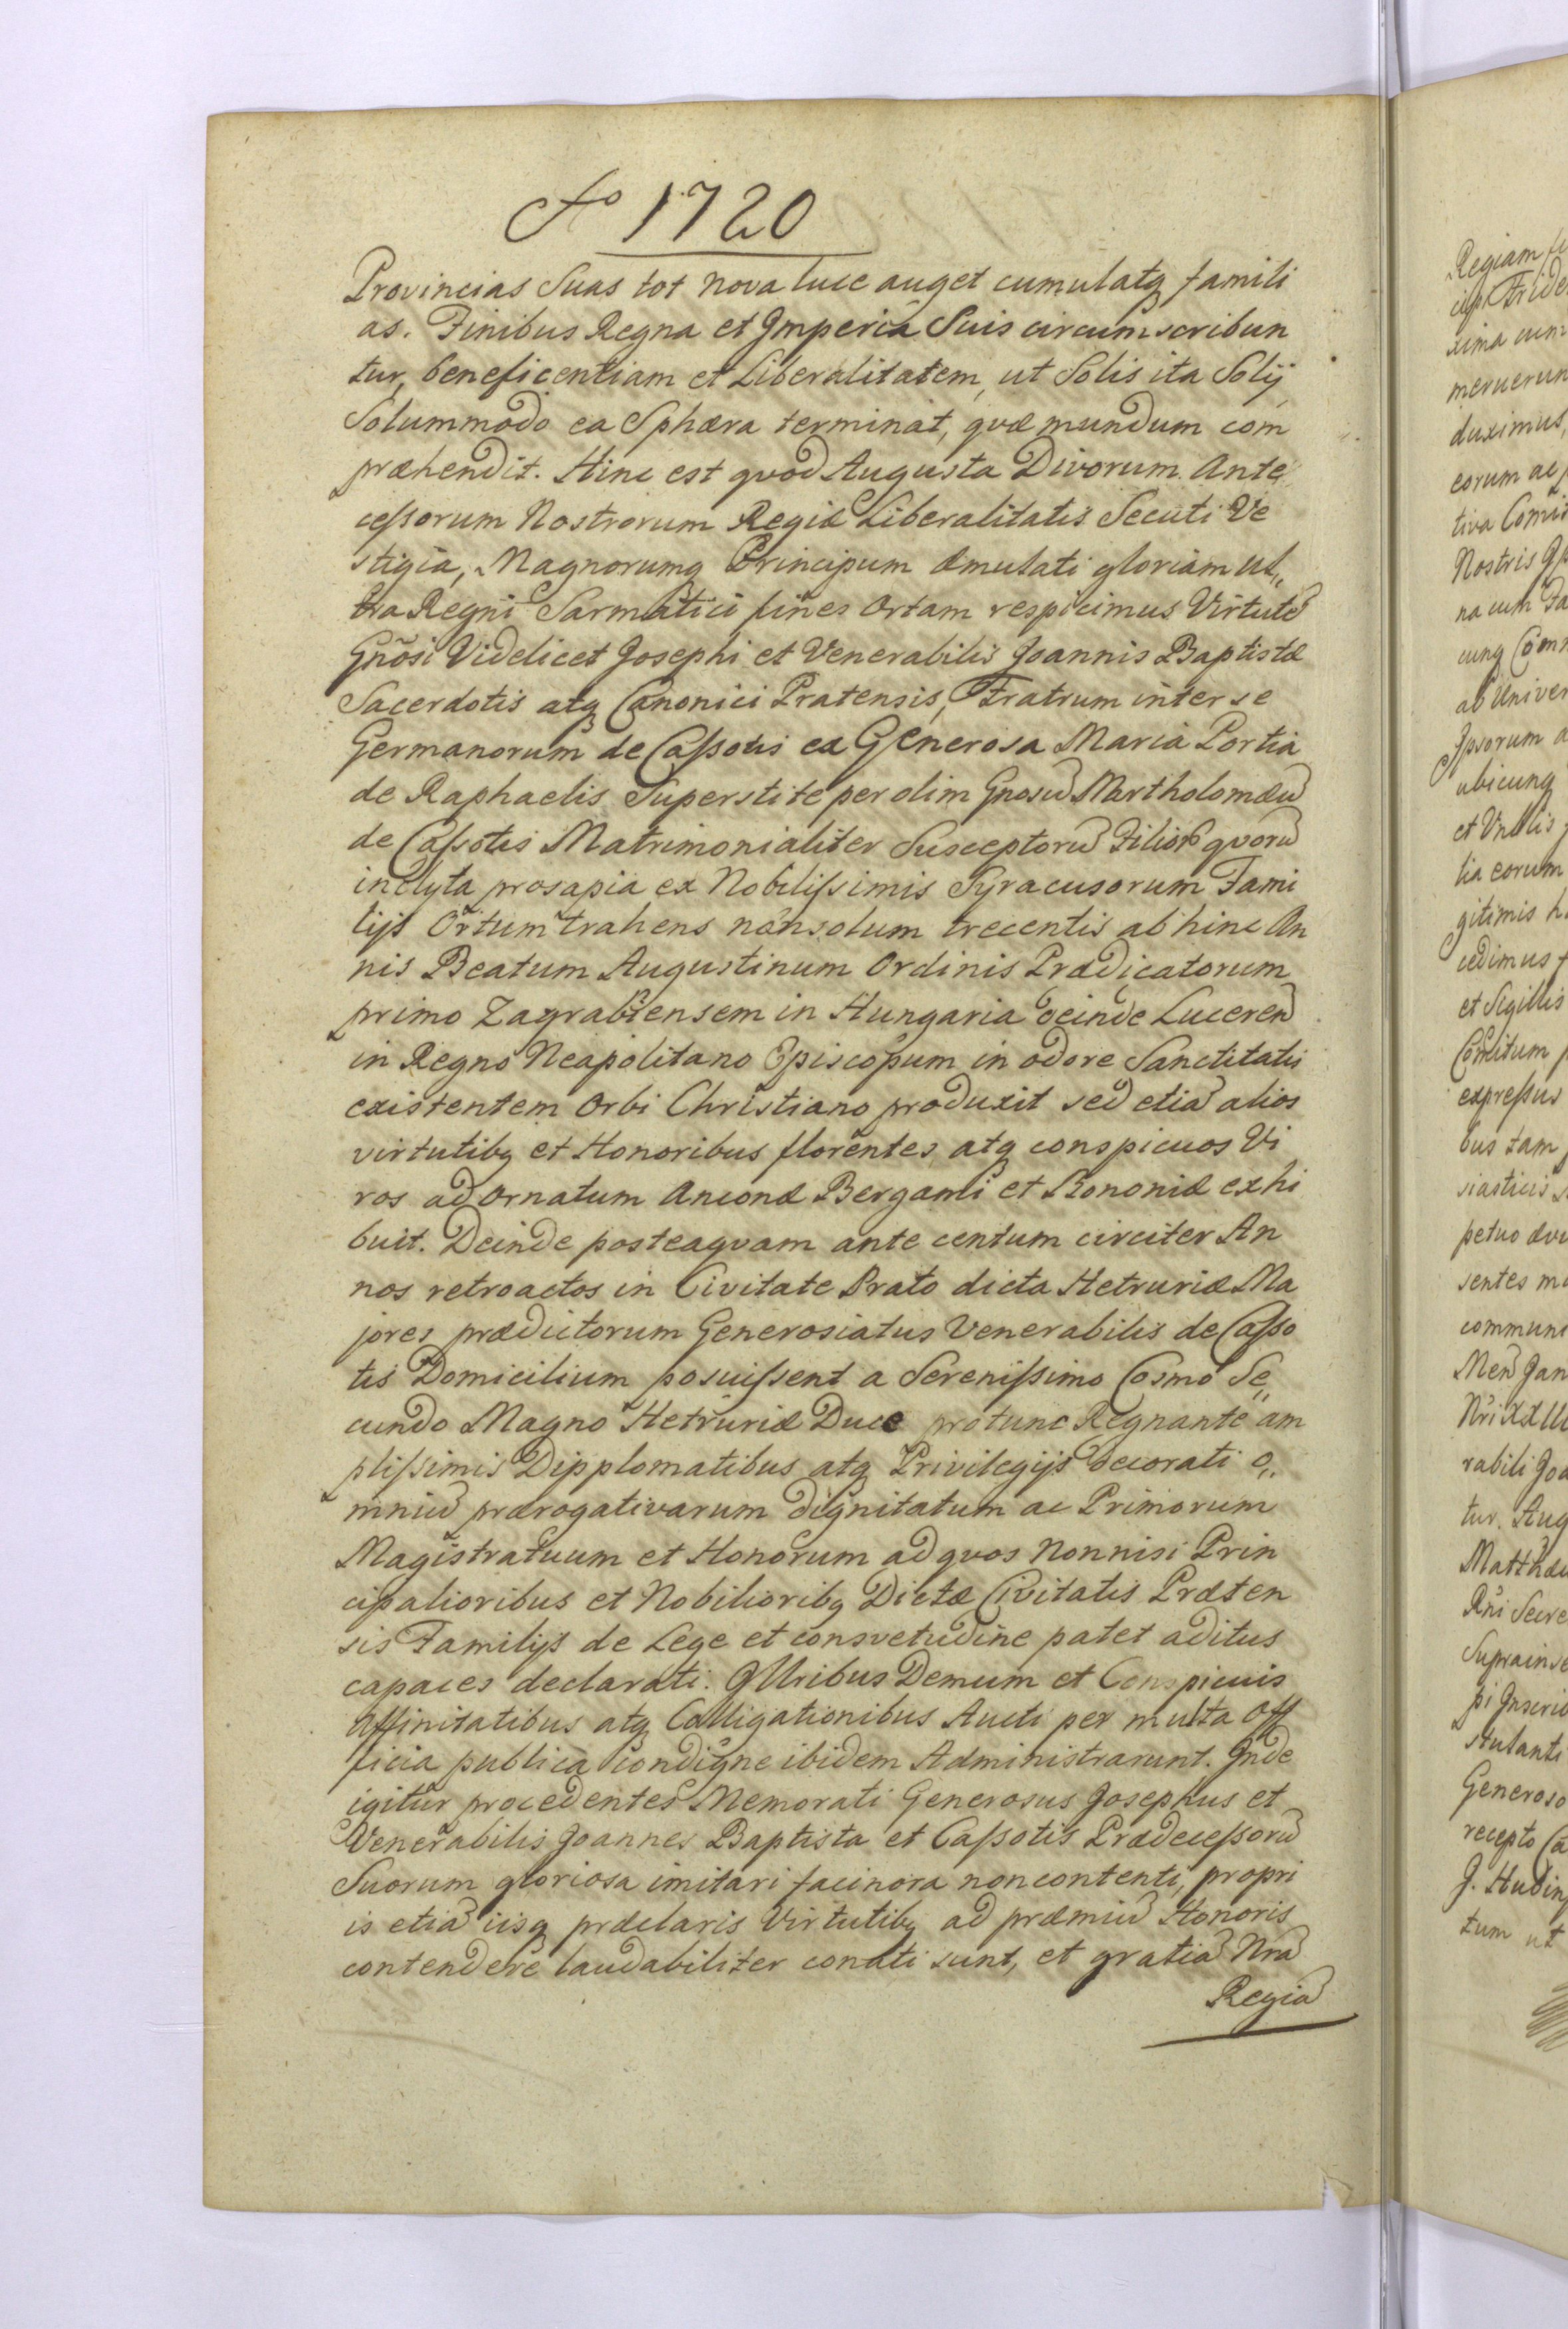 Ao 1720
Provincias Suas tot nova luce auget cumulatq famili
as. Finibus Regna et Imperia Suis circumscribun
tur, beneficentiam et Liberalitatem, ut Solis ita Solij
Solummodo ea Sphæra terminat, qvæ mundum com
præhendit. Hinc est qvod Augusta Divorum Ante
ceſsorum Nostrorum Regiæ Liberalitatis Secuti Ve
stigia, Magnorumq Principum æmulati gloriam ul„
tra Regni Sarmatici fines Ortam respicimus Virtutē
Gnõsi Videlicet Josephi et Venerabilis Joannis Baptistæ
Sacerdotis atq Canonici Pratensis, Fratrum inter se
Germanorum de Caſsotis ex Generosa Maria Portia
de Raphaelis Superstite per olim Gnosū Martholomæū
de Caſsotis Matrimonialiter Susceptorū Filior qvorū
inclyta prosapia ex Nobiliſsimis Syracusorum Fami
lijs Ortum trahens nonsolum trecentis abhinc An
nis Beatum Augustinum Ordinis Prædicatorum
primo Zagrabiensem in Hungaria deinde Luceren
in Regno Neapolitano Episcopum in odore Sanctitatis
existentem Orbi Christiano produxit sed etiā alios
virtutibq et Honoribus florentes atq conspicuos Vi
ros ad ornatum Anconæ Bergami et Bononiæ exhi
buit. Deinde posteaqvam ante centum circiter An
nos retroactos in Civitate Prato dicta Hetruriæ Ma
jores prædictorum Generosiatus Venerabilis de Caſso
tis Domicilium posuiſsent a Sereniſsimo Cosmo Se„
cundo Magno Hetruriæ Duce protunc Regnante am
pliſsimis Dipplomatibus atq Privilegijs decorati o„
mniū prærogativarum dignitatum ac Primorum
Magistratuum et Honorum ad qvos nonnisi Prin
cipalioribus et Nobilioribq Dictæ Civitatis Præten
sis Familijs de Lege et consvetudine patet aditus
capaces declarati. Illribus Demum et Conspicuis
Affinitatibus atq Colligationibus Aucti per multa Off
ficia publica condigne ibidem Administrarunt. Inde
igitur procedentes Memorati Generosus Josephus et
Venerabilis Joannes Baptista et Caſsotis Prædeceſsorū
Suorum gloriosa imitari facinora non contenti, propri
is etiā iisq præclaris Virtutibq ad præmiū Honoris
contendere laudabiliter conati sunt, et gratiā Nrā
Regiā
Regiam
xima cum
meruerun
duximus,
eorum ac
tiva Comi
Nostris
na cum
cunq Com
ab Univer
Ipsorum a
ubicunq
lia eorum
gitimis h
cedimus
et Sigillis
Comitum
expreſsus
bus tam
siasticis
petuo ævi
sentes m
communi
Men Jan
rabili Joa
tur. Aug
Matthæu
Suprainse
pi Inscrio
stulanti
Generoso
recepto Ca
tum ut